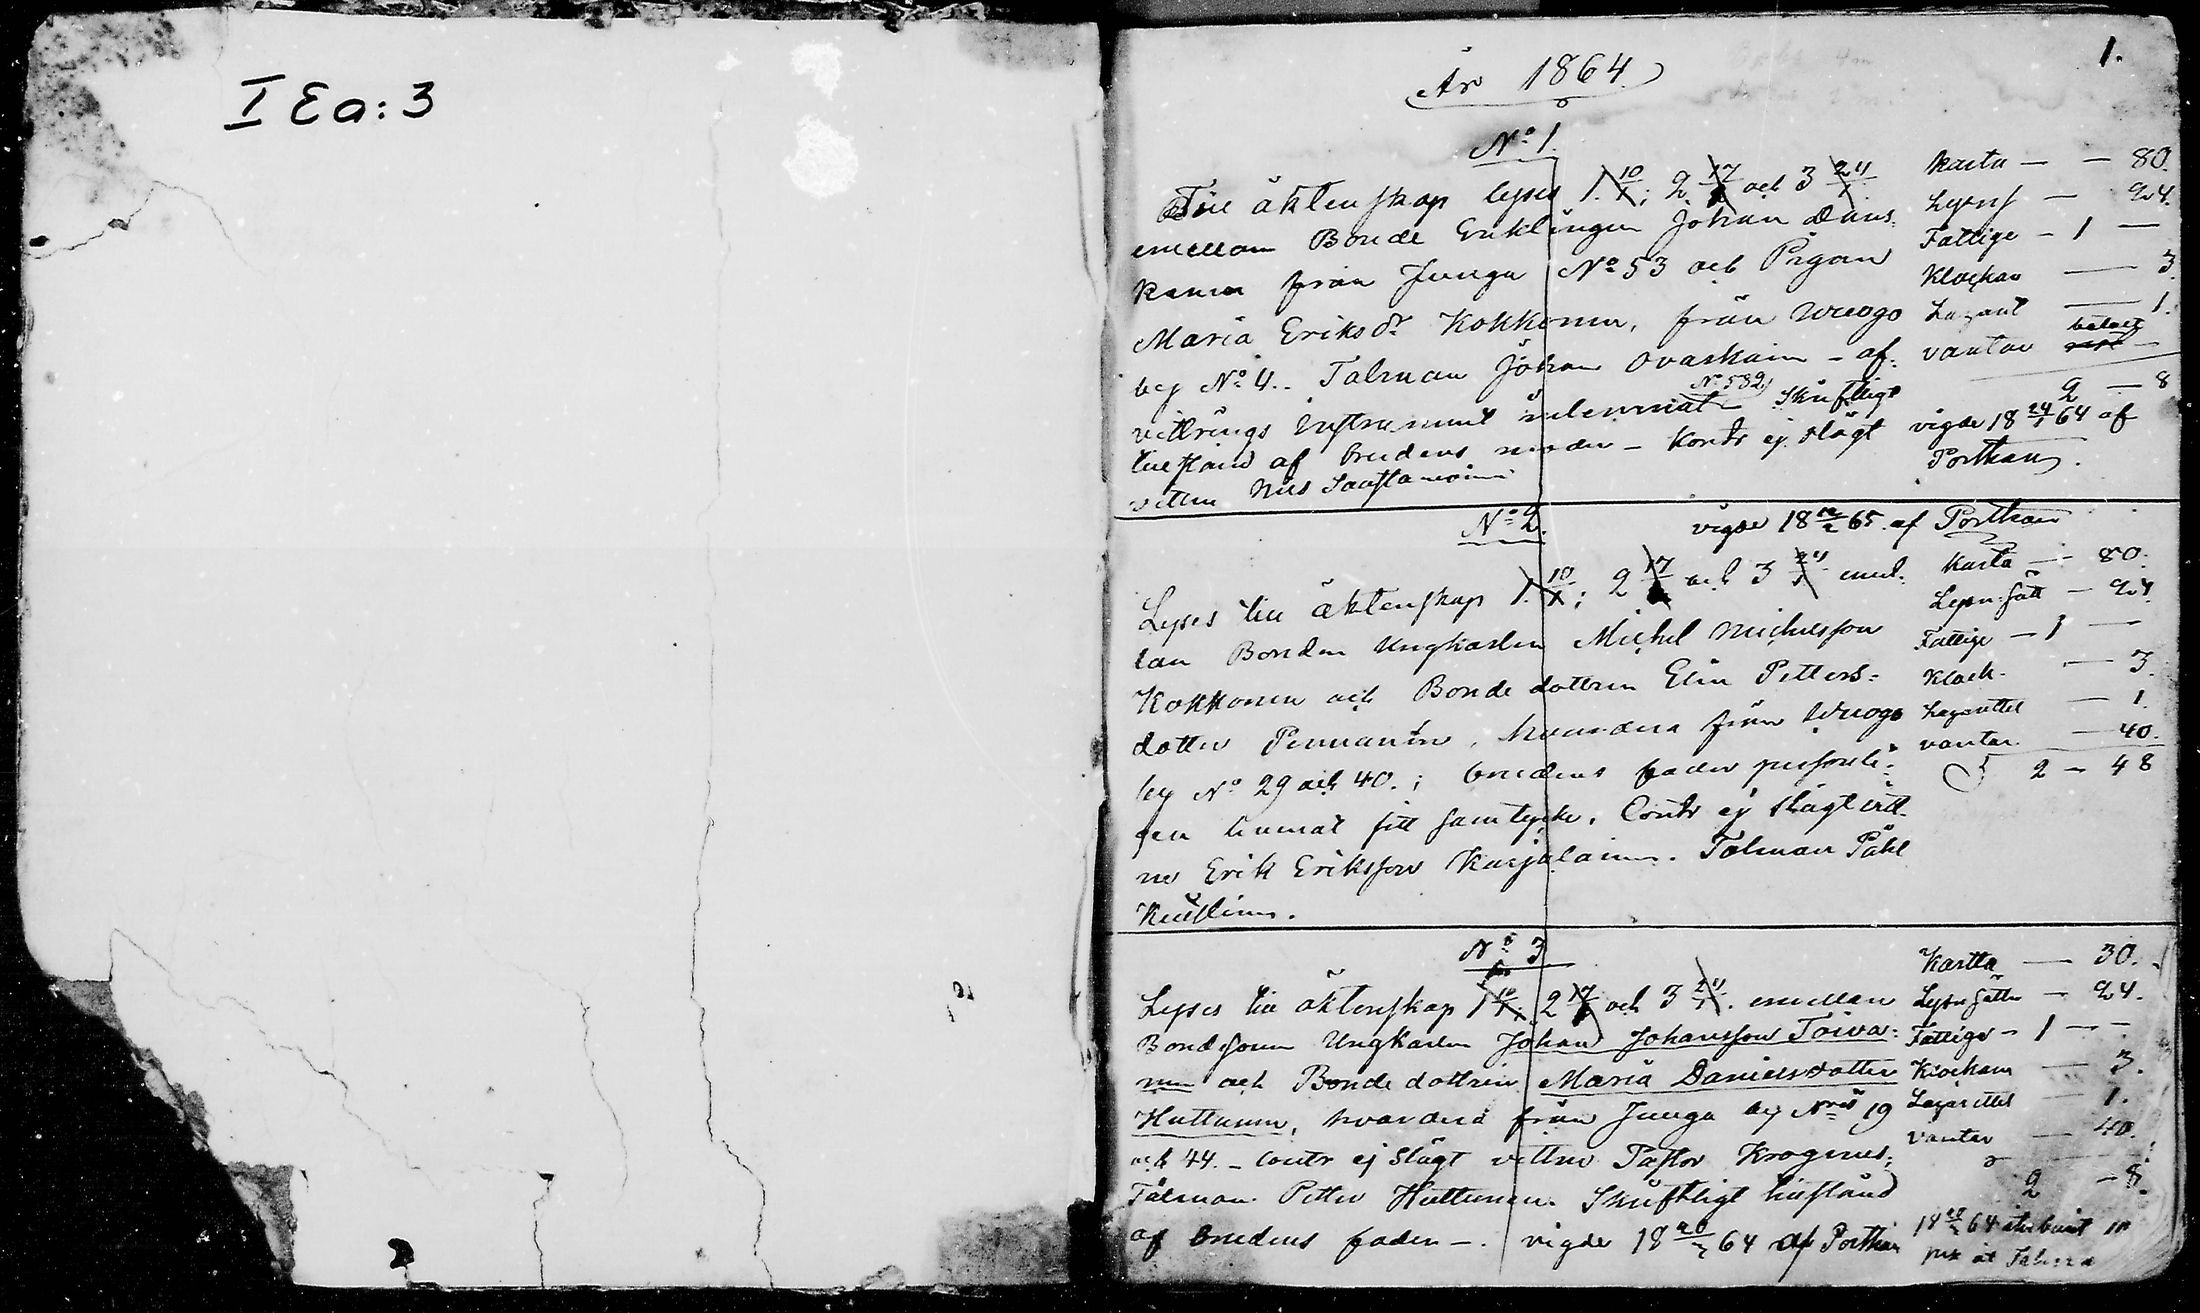 I Ea:3
1.
År 1864
No 1.
Till äktenskap lyses 1. 10/1; 2. 17/1 och 3 24/1
emellan Bonde Enklingen Johan Dans
kanen från Junga No 53 och Pigan
Maria Eriksdr Kokkonen, från Wuogo
by No 4.. Talman Johan Ovaskain - af-
vittrings instrument inlemnat No 582 Skriftligt
tillstånd af brudens moder - Kontr ej slägt
vittne Nils
Karta — — 80.
Lysnf — 24.
Fattige — 1 —
Klockar — 3.
Lazaret — 1.
vantar betalt
2 — 8
vigde 18 24/1 64 af
Porthan.
No 2.
vigde 18 12/2 65. af Porthan
Lyses till äktenskap 1. 10/1; 2 17/1 och 3 24/1 emel-
lan Bonden Ungkarlen Michel Michelsson
Kokkonen och Bonde dottren Elin Petters-
dotter Pennanen, hvardera från Wuogo
by No 29 och 40.; brudens fader personli-
gen lemnat sitt samtycke. Contr ej slägt vitt-
ne Erik Eriksson Karjalainen. Talman Påhl
Karta — 80.
Lysn.sätt — 24.
Fattige — 1 —
Klock. — 3.
Lazarettet — 1.
vantar — 40.
2 — 48
No 3
Lyses till äktenskap 1 10/1. 2 17/1 och 3 24/1. emellan
Bondesonen Ungkarlen Johan Johansson Toiva-
nen och Bonde dottren Maria Danielsdotter
Huttunen, hvardera från Junga by Nris 19
och 44. - Contr ej Slägt vittne Pastor Krogerus.
Talman Petter Huttunen. Skriftligt tillstånd
af brudens fader —. vigde 18 20/2 64 af Porthan
Kartta — 30.
Lysn sätte — 24.
Fattige — 1 — —
Klockare — 3.
Lazarettet — 1.
Vantar — 40.
2 — 8.